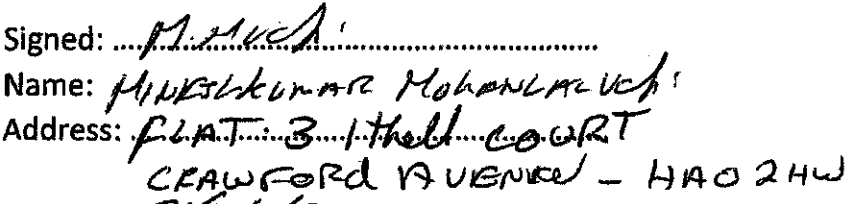 Signed: M.M.Uchi
Name: MINESHKUMAR MOHANLAL Uchi
Address: FLAT: 3 Ithell COURT
CRAWFORD AVENUE - HA0 2HW